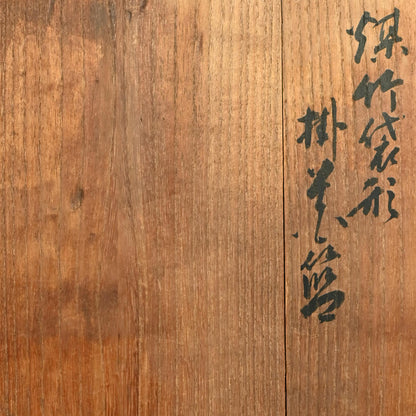 煤竹袋形
掛花籃